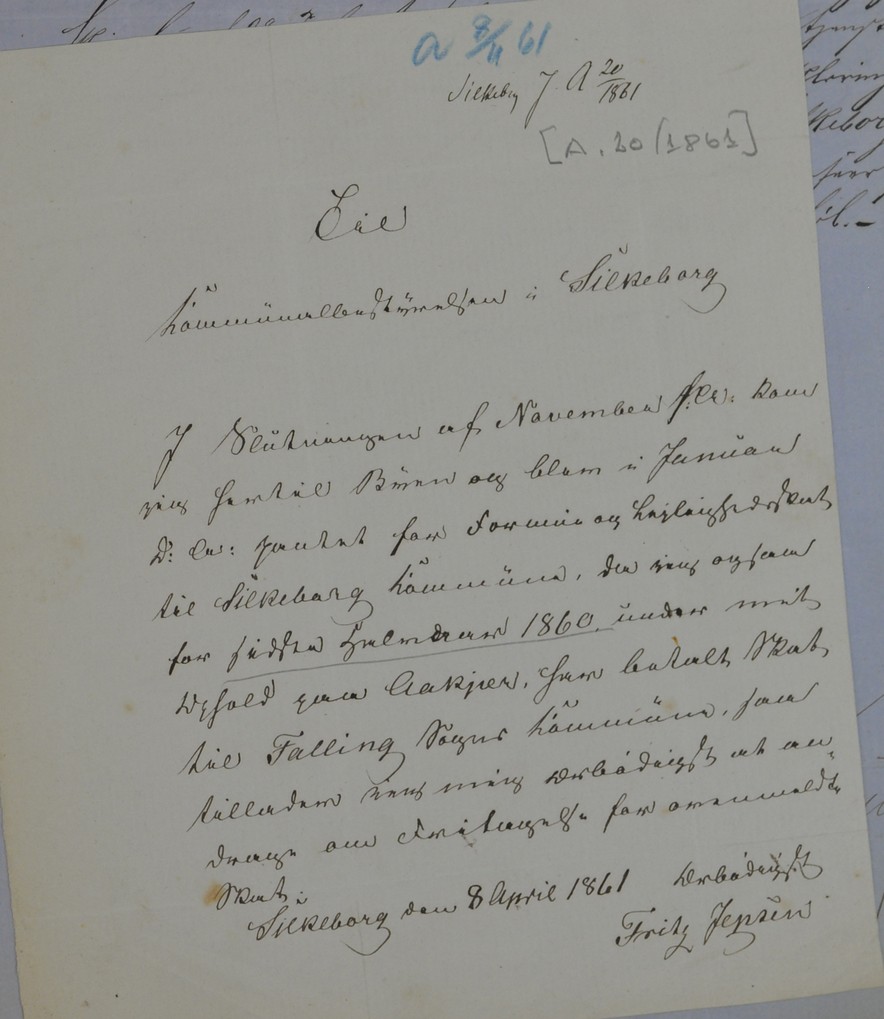 a 8/4 61
Silkeborg J. A 20/1861
[A. 20/1861]
Til
Kommunalbestyrelsen i Silkeborg
I Slutningen af November f. A: kom
jeg hertil Byen og blev i Januar
d: A: pantet for Formue og Lejlighedsskat
til Silkeborg Kommune, da jeg ogsaa
for sidste Halvdaar 1860, under mit
Ophold paa Aakjær, har betalt Skat
til Falling Sogns Kommune, saa
tillader jeg mig ærbødigst at an-
drage om Fritagelse for ovenmeldte
Skat.
Silkeborg den 8 April 1861 Ærbødigst
Fritz Jepsen